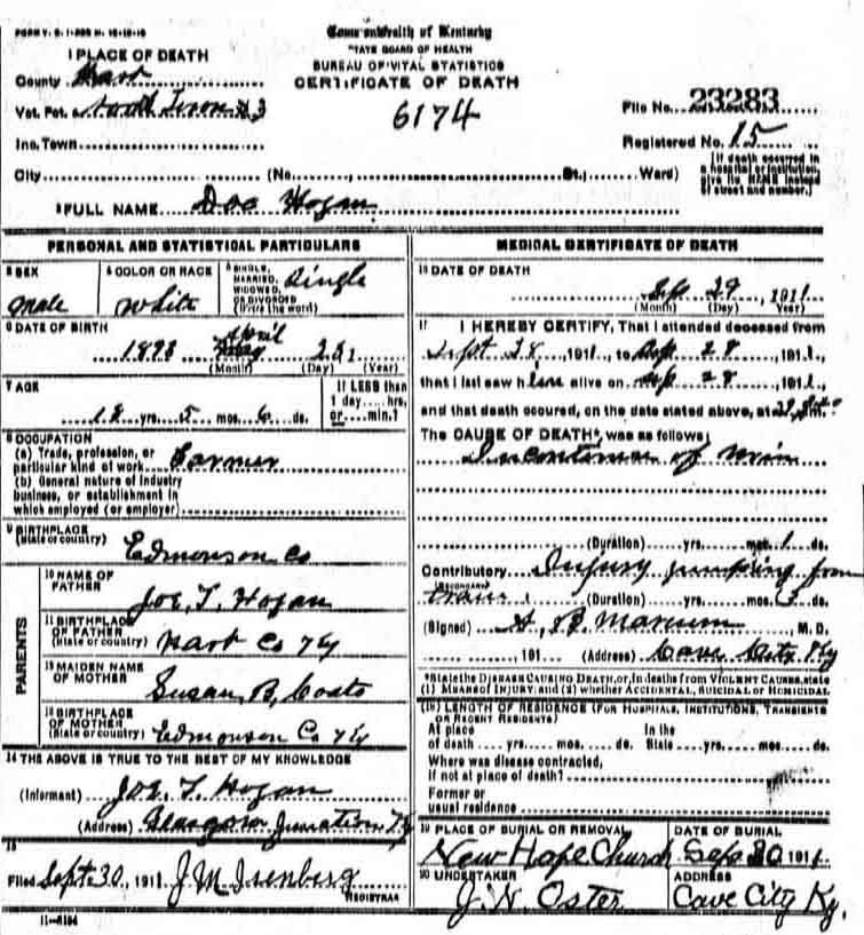 FORM V. S. 1-
Commonwealth of Kentucky
STATE BOARD OF HEALTH
BUREAU OF VITAL STATISTICS
CERTIFICATE OF DEATH
6174
1 PLACE OF DEATH
County Hart
Vot. Pct.
Inc. Town
City (No. , St.; Ward)
File No. 23283
Registered No. 15
[If death occurred in
a hospital or institution,
give its NAME instead
of street and number.]
2 FULL NAME Doc Hogan
PERSONAL AND STATISTICAL PARTICULARS
3 SEX
male
4 COLOR OR RACE
White
5 SINGLE,
MARRIED,
WIDOWED,
OR DIVORCED
(Write the word)
Single
6 DATE OF BIRTH
April
(Month) (Day) (Year)
7 AGE
18 yrs. 5 mos. 6 ds.
If LESS than
1 day.....hrs.
or.....min.?
8 OCCUPATION
(a) Trade, profession, or
particular kind of work Farmer
(b) General nature of industry
business, or establishment in
which employed (or employer)
9 BIRTHPLACE
(State or country)
Edmonson Co
PARENTS
10 NAME OF
FATHER
Joe. T. Hogan
11 BIRTHPLACE
OF FATHER
(State or country)
Hart Co Ky
12 MAIDEN NAME
OF MOTHER
Susan, B, Coats
13 BIRTHPLACE
OF MOTHER
(State or country)
Edmonson Co Ky
14 THE ABOVE IS TRUE TO THE BEST OF MY KNOWLEDGE
(Informant) Joe. T. Hogan
(Address) Glasgow Junction Ky
15
Filed Sept. 30, 1911 J M Isenberg
REGISTRAR
11-6184
MEDICAL CERTIFICATE OF DEATH
16 DATE OF DEATH
Sep. 29, 1911
(Month) (Day) (Year)
17 I HEREBY CERTIFY, That I attended deceased from
Sept 28, 1911, to Sept 28, 1911,
that I last saw h alive on Sep 28, 1911,
and that death occured, on the date stated above, at
The CAUSE OF DEATH*, was as follows:
(Duration) yrs. mos. 1 ds.
Contributory Injury jumping from
(SECONDARY)
train (Duration) yrs. mos. ds.
(Signed) M. D.
, 191 (Address) Cave City Ky
*State the DISEASE CAUSING DEATH, or, in deaths from VIOLENT CAUSES, state
(1) MEANS OF INJURY; and (2) whether ACCIDENTAL, SUICIDAL or HOMICIDAL
(18) LENGTH OF RESIDENCE (FOR HOSPITALS, INSTITUTIONS, TRANSIENTS
OR RECENT RESIDENTS)
At place In the
of death yrs. mos. ds. State yrs. mos. ds.
Where was disease contracted,
if not at place of death?
Former or
usual residence
19 PLACE OF BURIAL OR REMOVAL
New Hope Church
DATE OF BURIAL
Sept 30 1911
20 UNDERTAKER
J. N. Oster
ADDRESS
Cave City Ky.